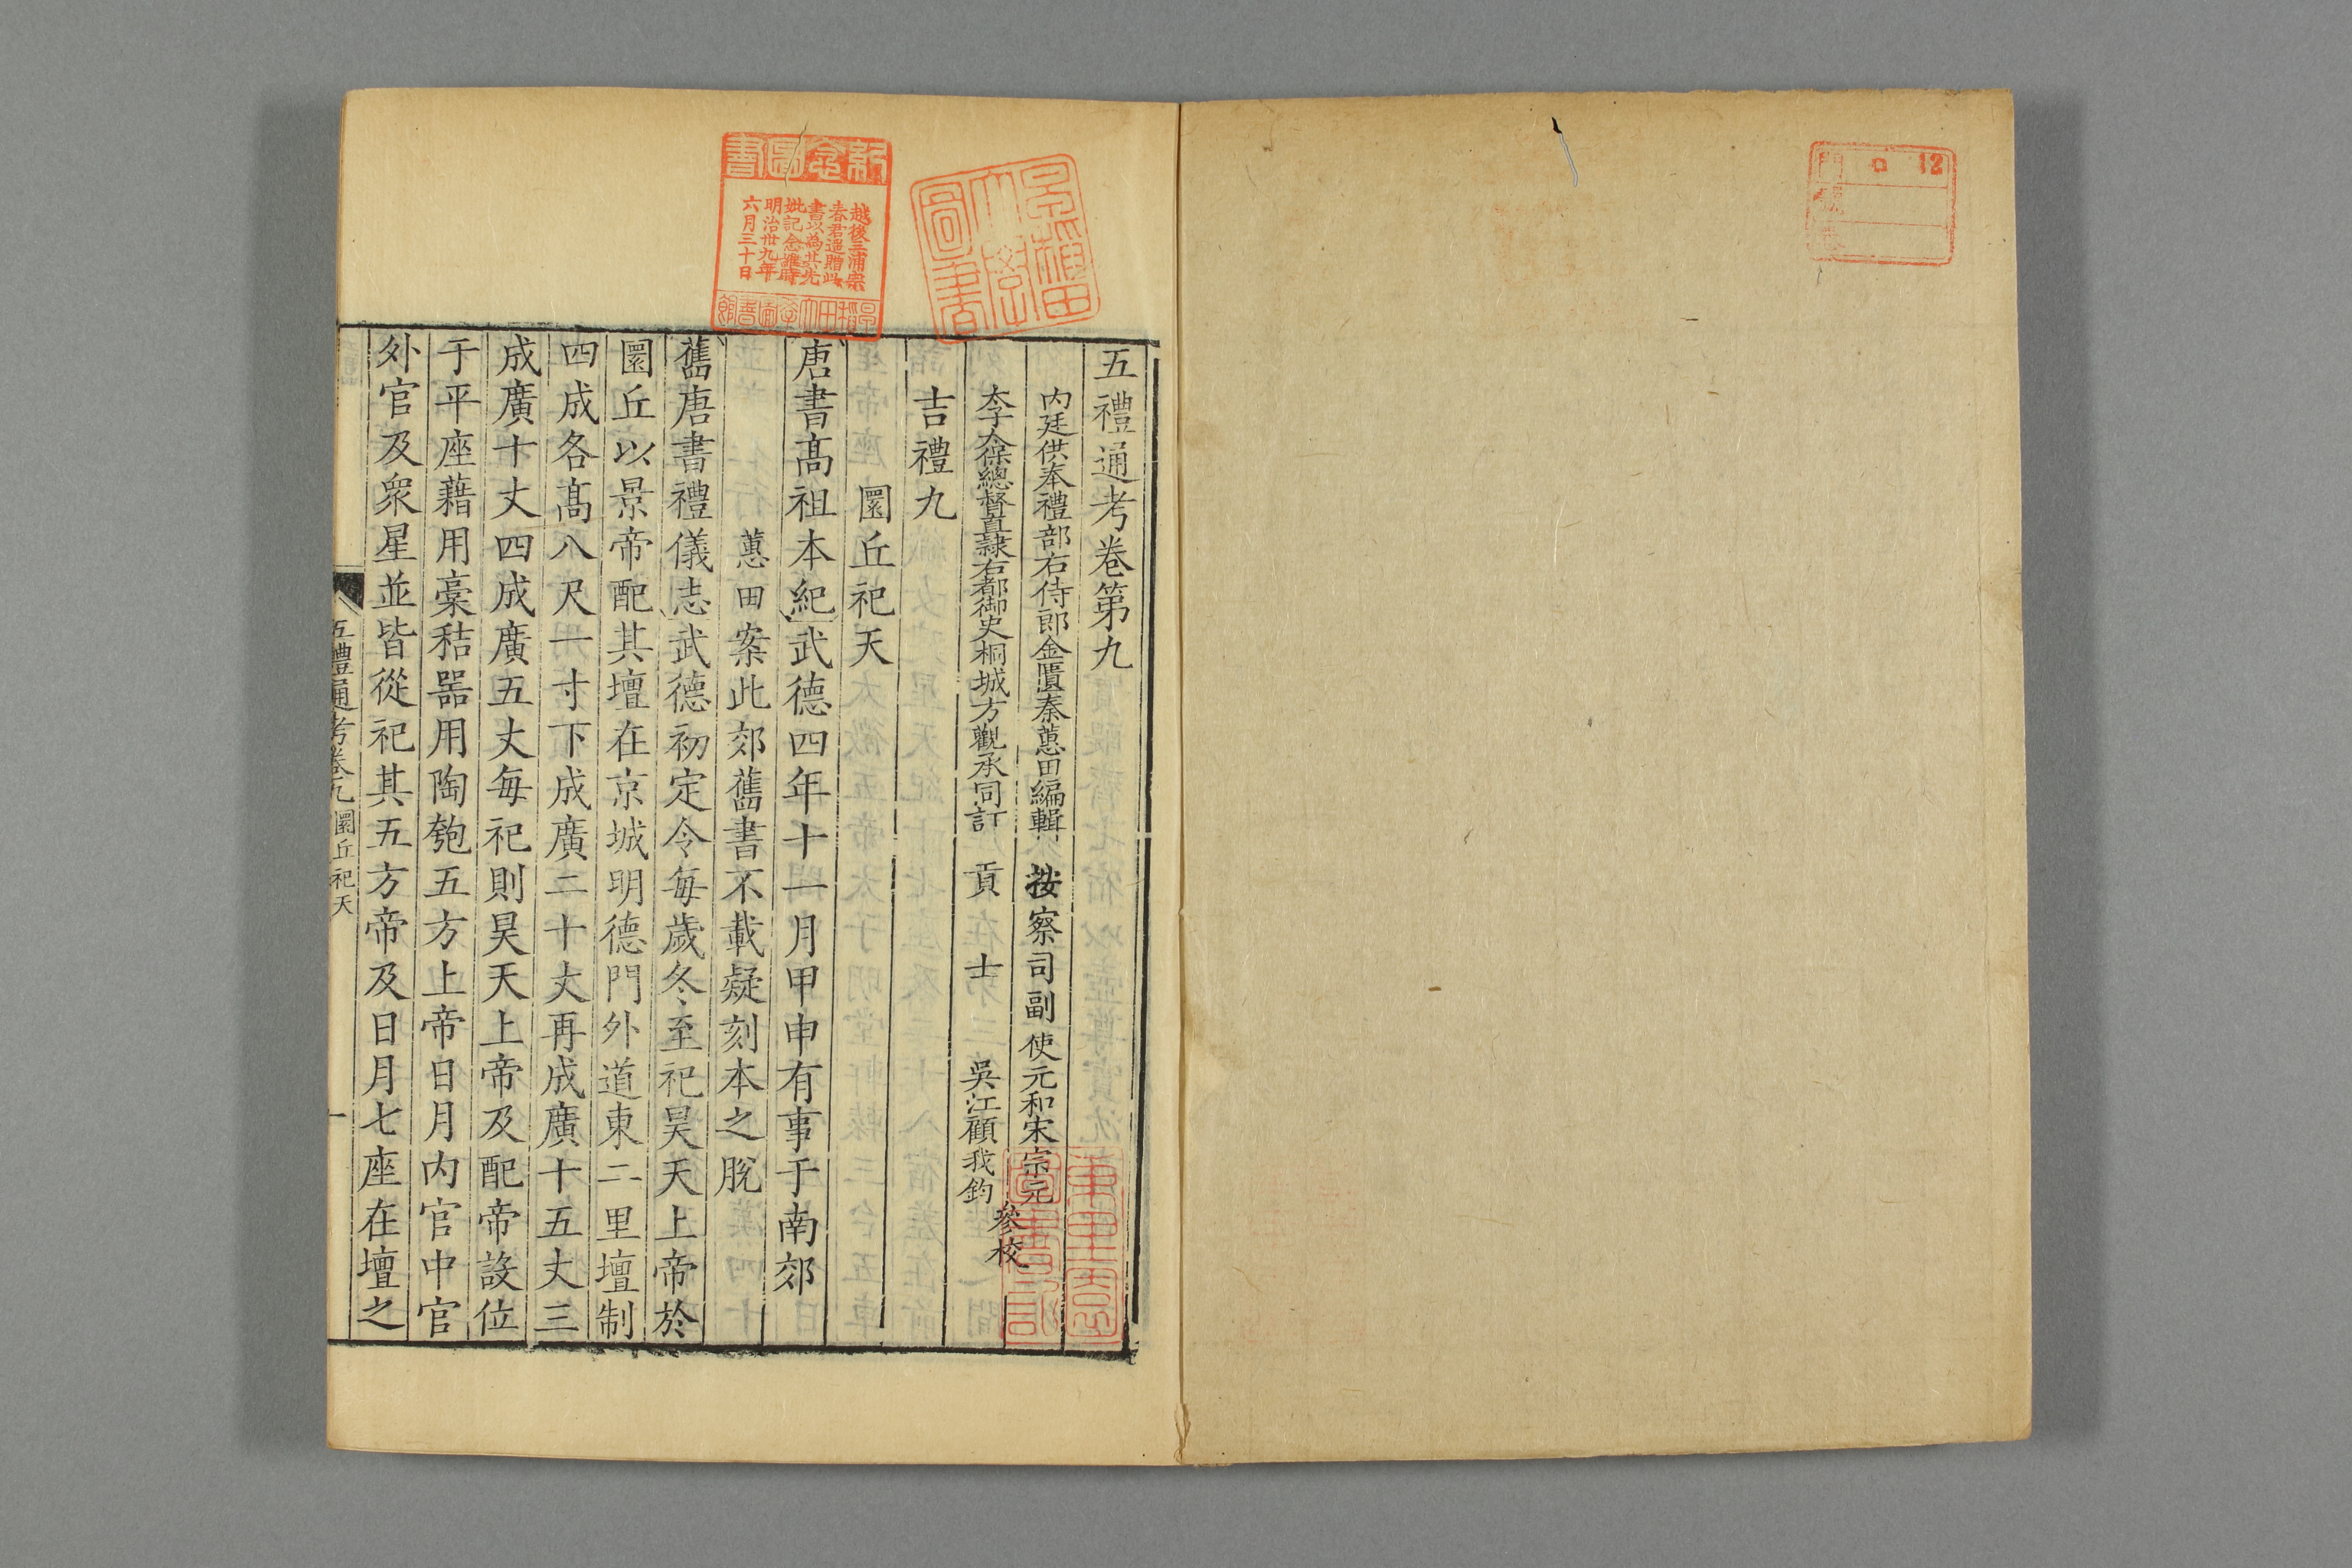 五禮通考卷第九
内廷供奉禮部右侍郎金匱秦蕙田編輯 按察司副使元和宋宗元
太子太保總督直隸右都御史桐城方觀承同訂 貢士吳江顧我鈞
參校
吉禮九
圜丘祀天
唐書髙祖本紀武德四年十一月甲申有事于南郊
蕙田案此郊舊書不載疑刻本之脫
舊唐書禮儀志武德初定令每歲冬至祀昊天上帝於
圜丘以景帝配其壇在京城明德門外道東二里壇制
四成各髙八尺一寸下成廣二十丈再成廣十五丈三
成廣十丈四成廣五丈每祀則昊天上帝及配帝設位
于平座藉用稾秸器用陶匏五方上帝日月内官中官
外官及衆星並皆從祀其五方帝及日月七座在壇之
五禮通考卷九 圜丘祀天 一
紀念圖書
越後三浦宗
春君遥贈此
書以爲其先
妣記念維時
明治卅九年
六月三十日
早稻田大學
圖書
12
門
號